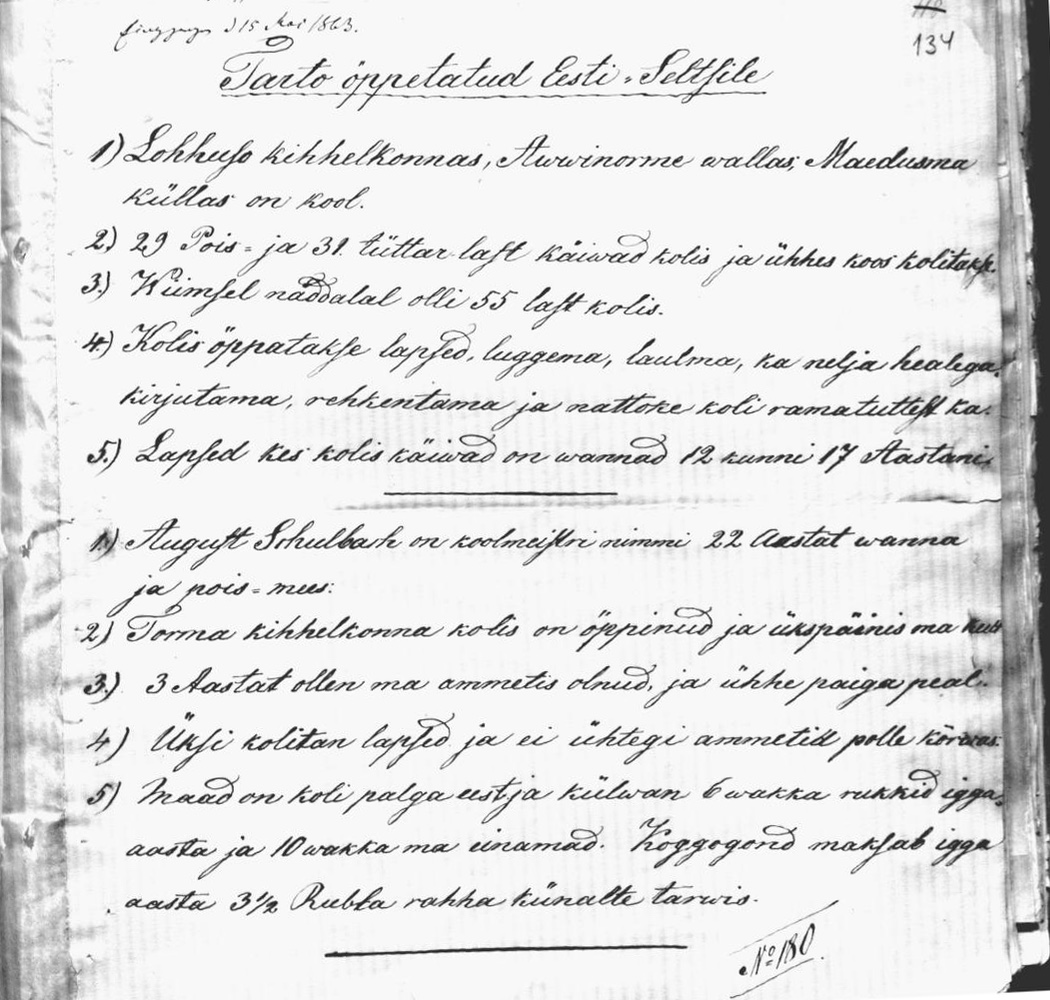 Eingegangen d 15 Mai 1863.
134
Tarto öppetatud Eesti-Seltsile
1) Lohhuso kihhelkonnas, Awwinorme wallas, Maedusma
küllas on kool.
2) 29 Pois- ja 31 tüttar last käiwad kolis ja ühhes koos kolitakse.
3.) Wiimsel näddalal olli 55 last kolis.
4.) Kolis öppatakse lapsed, luggema, laulma, ka nelja healega,
kirjutama, rehkentama ja nattoke koli ramatuttest ka.
5.) Lapsed kes kolis käiwad on wannad 12 kunni 17 Aastani,
1.) August Schulbach on koolmeistri nimmi 22 Aastat wanna
ja pois-mees:
2) Torma kihhelkonna kolis on öppinud ja ükspäinis ma keelt
3.) 3 Aastat ollen ma ammetis olnud, ja ühhe paiga peal.
4) Üksi kolitan lapsed ja ei ühtegi ammetid polle körwas.
5) Maad on koli palga eest ja külwan 6 wakka rukkid igga-
aasta ja 10 wakka ma einamad. Koggogond maksab igga
aasta 3 1/2 Rubla rahha künalte tarwis.
No 180